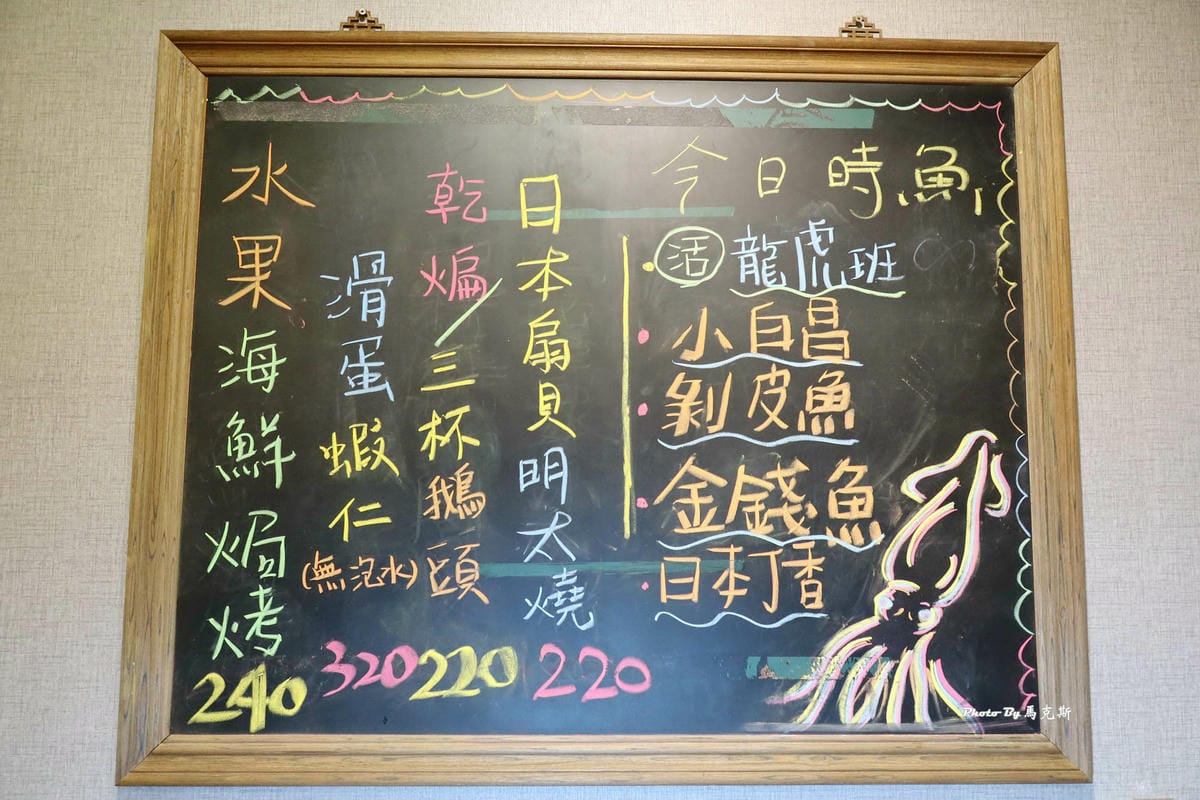 今日時魚
活 龍虎班
小白昌
剝皮魚
金錢魚
日本丁香
日本扇貝明太燒
220
乾煸/三杯鵝頭
220
滑蛋蝦仁(無泡水)
320
水果海鮮焗烤
240
Photo By 馬克斯